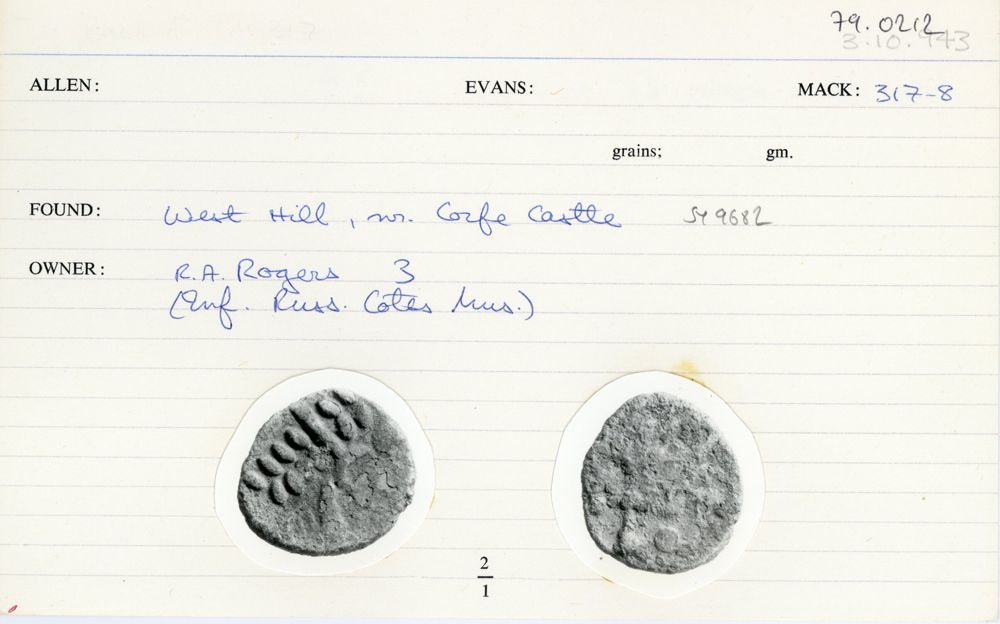 79.0212
3.10.943
ALLEN: EVANS: MACK: 317-8
grains; gm.
FOUND: West Hill, nr. Corfe Castle SY 9682
OWNER: R.A. Rogers 3
(Inf. Russ. Cotes Mus.)
2
1